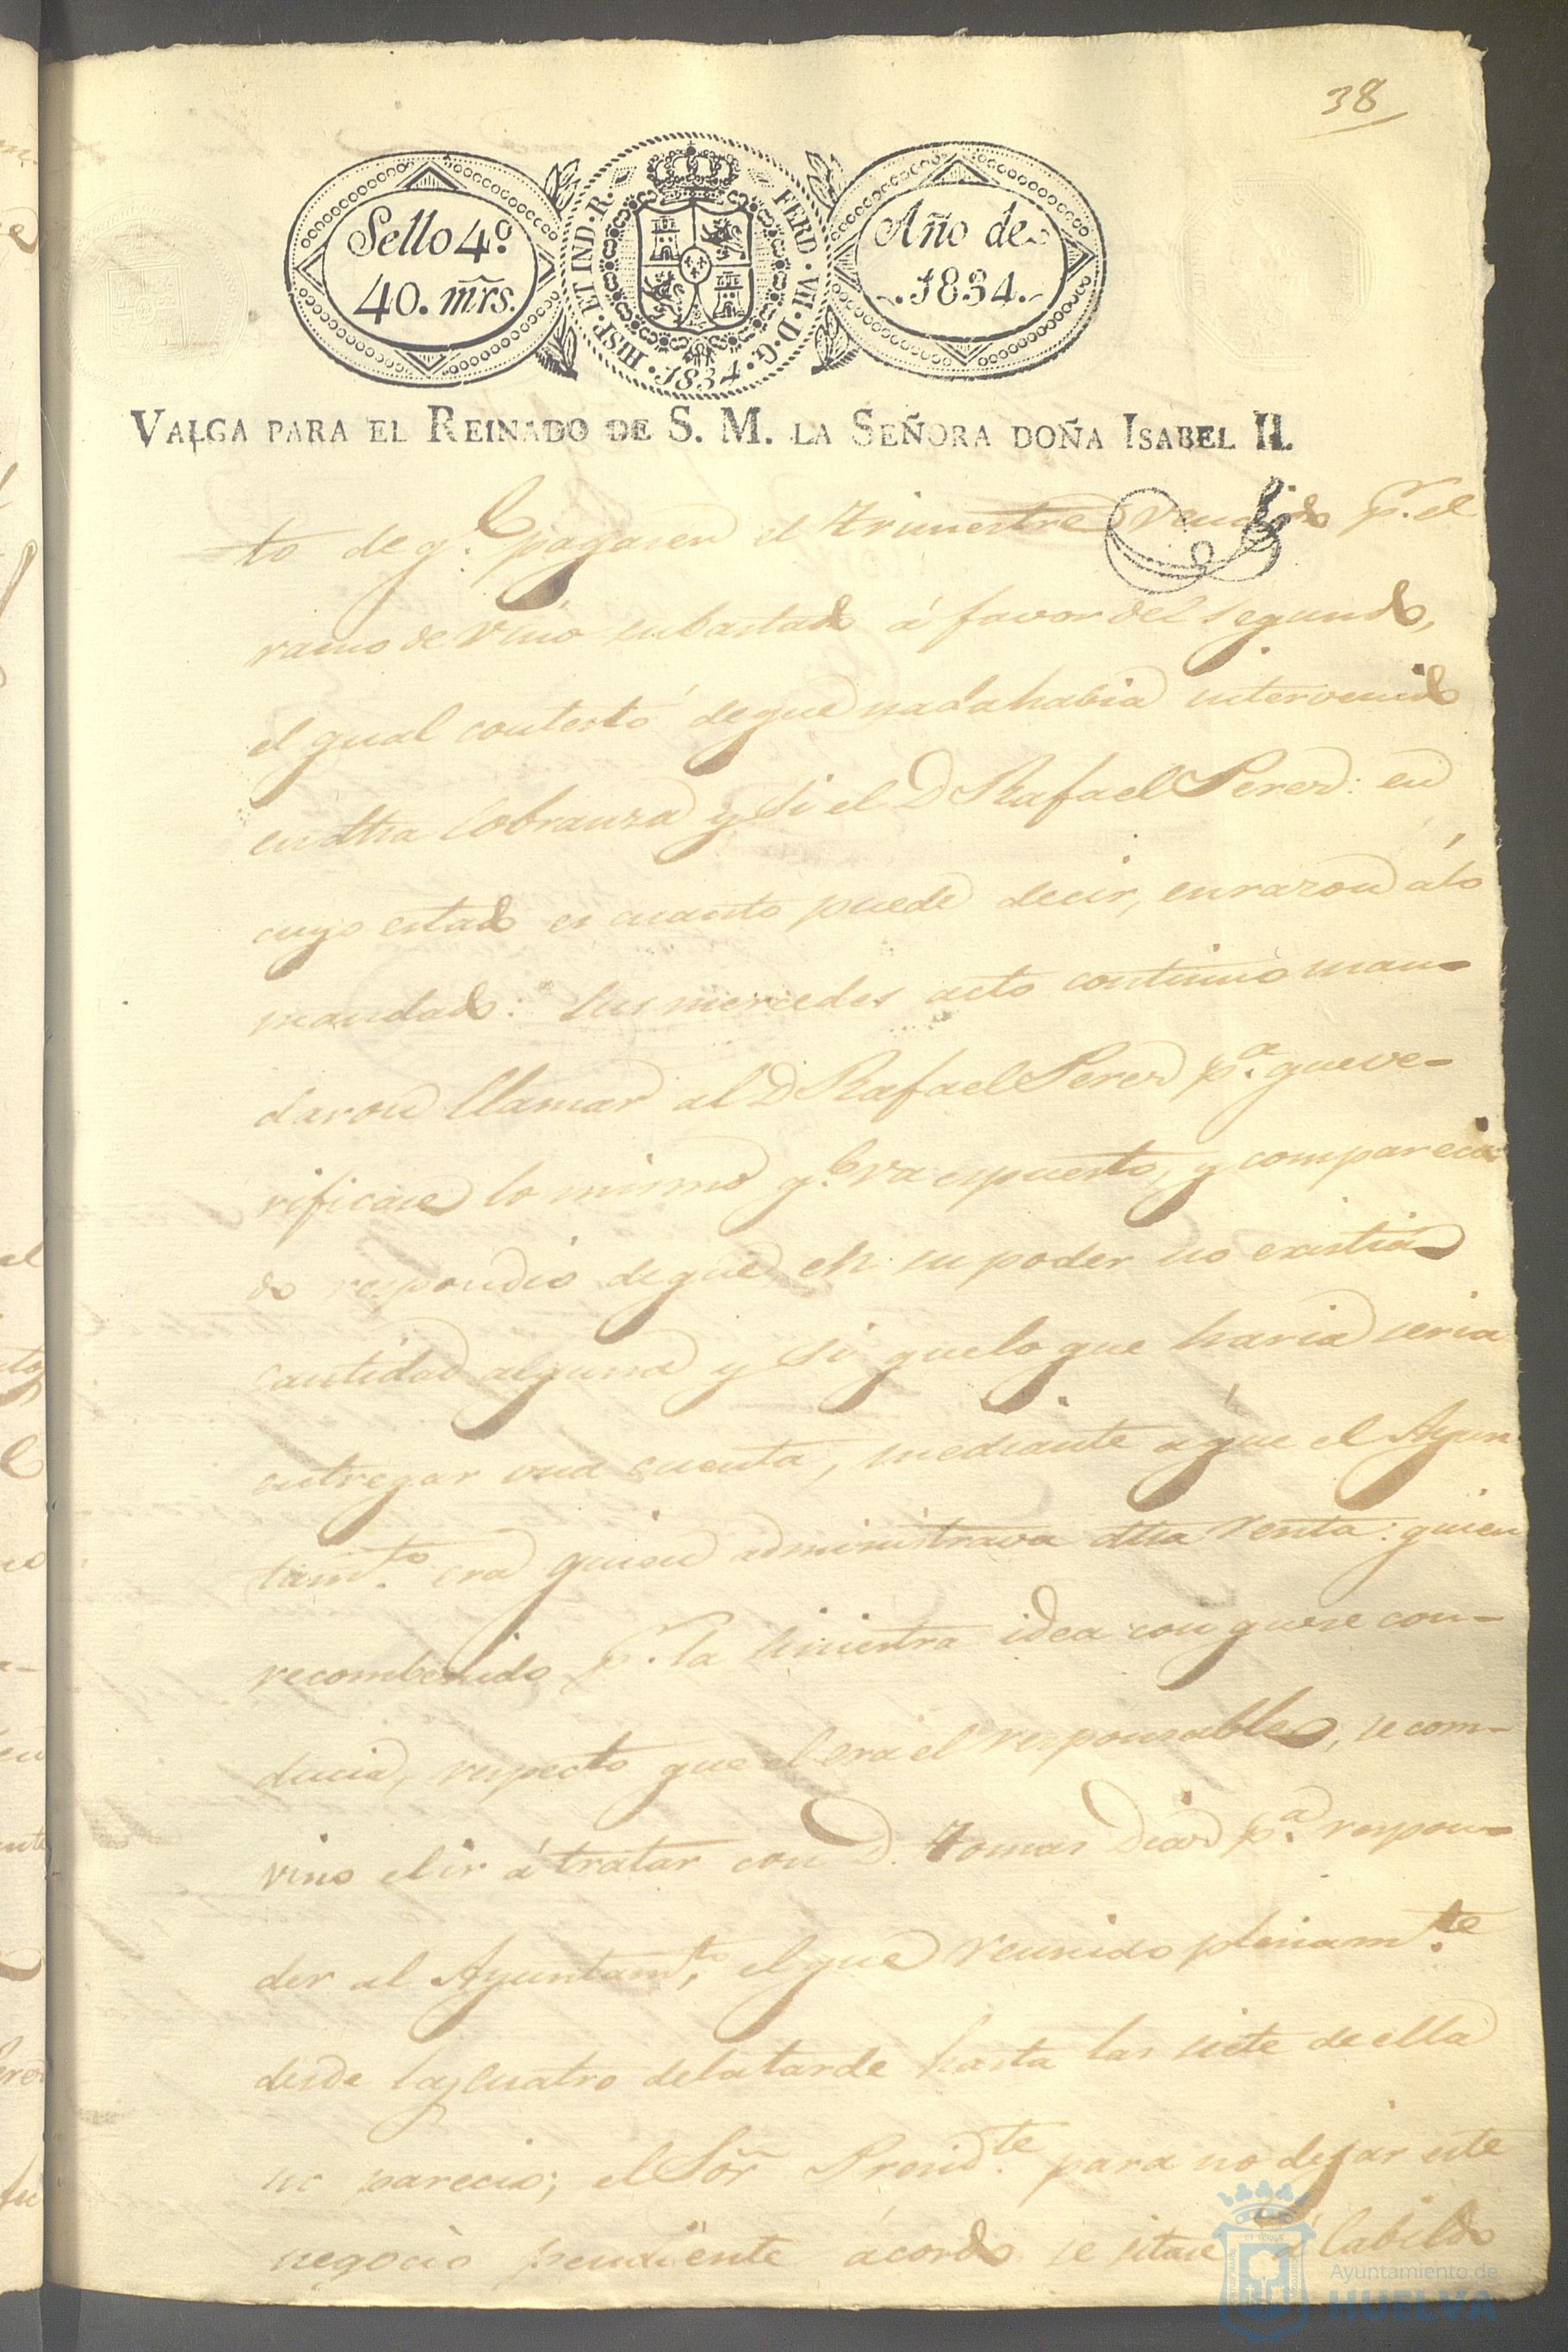 38
Sello 4º
40. mrs.
HISP. ET IND. R.
FERD. VII. D. G.
1834
Año de
1834.
VALGA PARA EL REINADO DE S. M. LA SEÑORA DOÑA ISABEL II.
to de q.e pagasen el trimestre vencido p.r el
ramo de vino subastado á favor del segundo,
el qual contestó de que nada habia intervenido
en dha cobranza y si el D Rafael Perez: en
cuyo estado es cuanto puede decir, en razon á lo
mandado: sus mercedes acto continuo man-
daron llamar al D Rafael Perez p.a que ve-
rificase lo mismo q.e va espuesto, y comparecien-
do respondió de que en su poder no existia
cantidad alguna y si que lo que haria seria
entregar una cuenta, mediante a que el Ayun
tam.to era quien administrava dha renta: quien
recombenido p.r la siniestra idea con que se con-
ducia, respecto que el era el responsable, se com-
vino el ir á tratar con D. Tomas Diaz p.a respon-
der al Ayuntam.to, el que reunido plenam.te
desde las cuatro de la tarde hasta las siete de ella
no parecio; el Sor Presid.te para no dejar este
negocio pendiente acordo se sitase á Cabildo
Ayuntamiento de
HUELVA